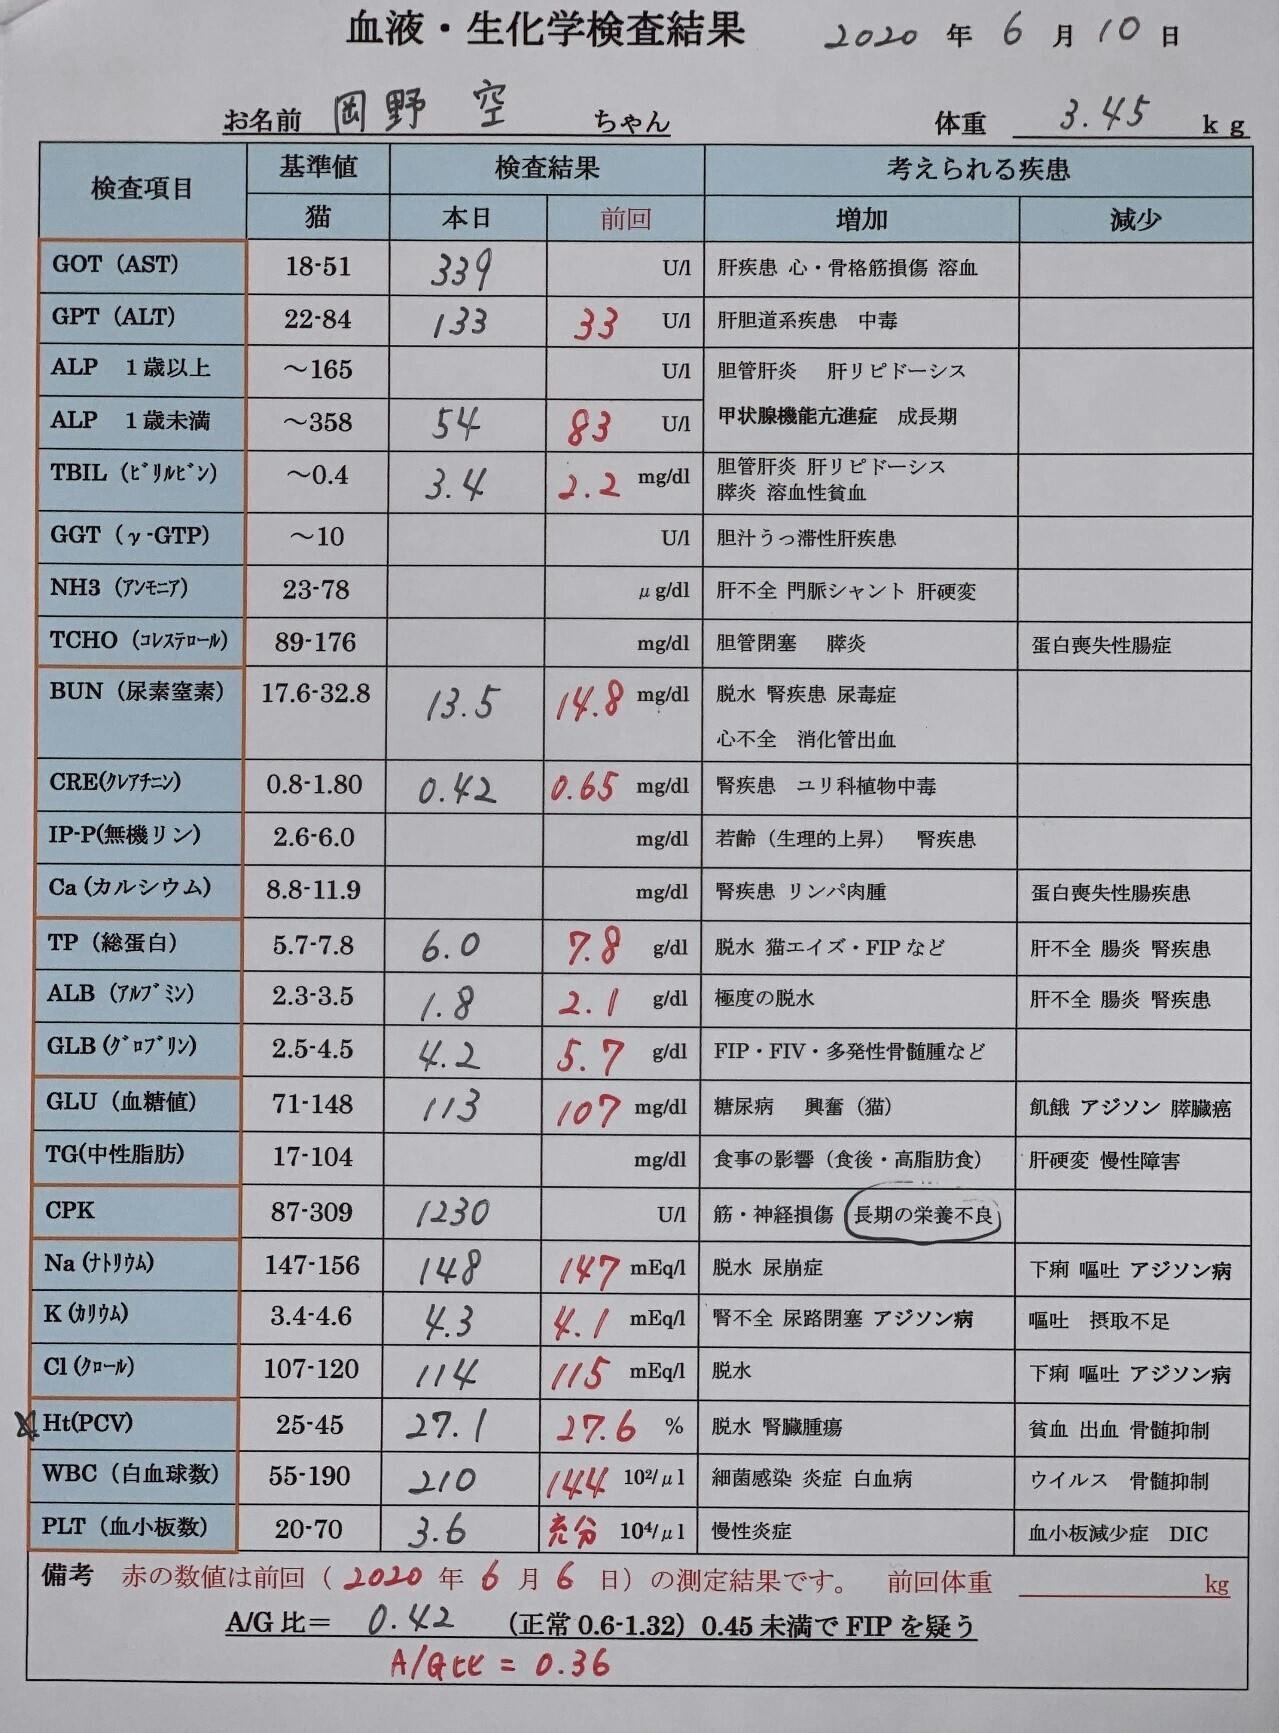 血液・生化学検査結果 2020 年 6 月 10 日
お名前 岡野 空 ちゃん 体重 3.45 kg
検査項目 基準値 検査結果 考えられる疾患
猫 本日 前回 増加 減少
GOT（AST） 18-51 339 U/l 肝疾患 心・骨格筋損傷 溶血
GPT（ALT） 22-84 133 33 U/l 肝胆道系疾患 中毒
ALP 1歳以上 ～165 U/l 胆管肝炎 肝リピドーシス
ALP 1歳未満 ～358 54 83 U/l 甲状腺機能亢進症 成長期
TBIL（ﾋﾞﾘﾙﾋﾞﾝ） ～0.4 3.4 2.2 mg/dl 胆管肝炎 肝リピドーシス
膵炎 溶血性貧血
GGT（γ-GTP） ～10 U/l 胆汁うっ滞性肝疾患
NH3（ｱﾝﾓﾆｱ） 23-78 μg/dl 肝不全 門脈シャント 肝硬変
TCHO（ｺﾚｽﾃﾛｰﾙ） 89-176 mg/dl 胆管閉塞 膵炎 蛋白喪失性腸症
BUN（尿素窒素） 17.6-32.8 13.5 14.8 mg/dl 脱水 腎疾患 尿毒症
心不全 消化管出血
CRE(ｸﾚｱﾁﾆﾝ) 0.8-1.80 0.42 0.65 mg/dl 腎疾患 ユリ科植物中毒
IP-P(無機リン) 2.6-6.0 mg/dl 若齢（生理的上昇） 腎疾患
Ca(カルシウム) 8.8-11.9 mg/dl 腎疾患 リンパ肉腫 蛋白喪失性腸疾患
TP（総蛋白） 5.7-7.8 6.0 7.8 g/dl 脱水 猫エイズ・FIPなど 肝不全 腸炎 腎疾患
ALB（ｱﾙﾌﾞﾐﾝ） 2.3-3.5 1.8 2.1 g/dl 極度の脱水 肝不全 腸炎 腎疾患
GLB(ｸﾞﾛﾌﾞﾘﾝ) 2.5-4.5 4.2 5.7 g/dl FIP・FIV・多発性骨髄腫など
GLU（血糖値） 71-148 113 107 mg/dl 糖尿病 興奮（猫） 飢餓 アジソン 膵臓癌
TG(中性脂肪) 17-104 mg/dl 食事の影響（食後・高脂肪食） 肝硬変 慢性障害
CPK 87-309 1230 U/l 筋・神経損傷 長期の栄養不良
Na(ﾅﾄﾘｳﾑ) 147-156 148 147 mEq/l 脱水 尿崩症 下痢 嘔吐 アジソン病
K(ｶﾘｳﾑ) 3.4-4.6 4.3 4.1 mEq/l 腎不全 尿路閉塞 アジソン病 嘔吐 摂取不足
Cl(ｸﾛｰﾙ) 107-120 114 115 mEq/l 脱水 下痢 嘔吐 アジソン病
Ht(PCV) 25-45 27.1 27.6 % 脱水 腎臓腫瘍 貧血 出血 骨髄抑制
WBC（白血球数） 55-190 210 144 10²/μl 細菌感染 炎症 白血病 ウイルス 骨髄抑制
PLT（血小板数） 20-70 3.6 充分 10⁴/μl 慢性炎症 血小板減少症 DIC
備考 赤の数値は前回（ 2020 年 6 月 6 日）の測定結果です。 前回体重 kg
A/G比＝ 0.42 （正常0.6-1.32）0.45未満でFIPを疑う
A/G比 = 0.36